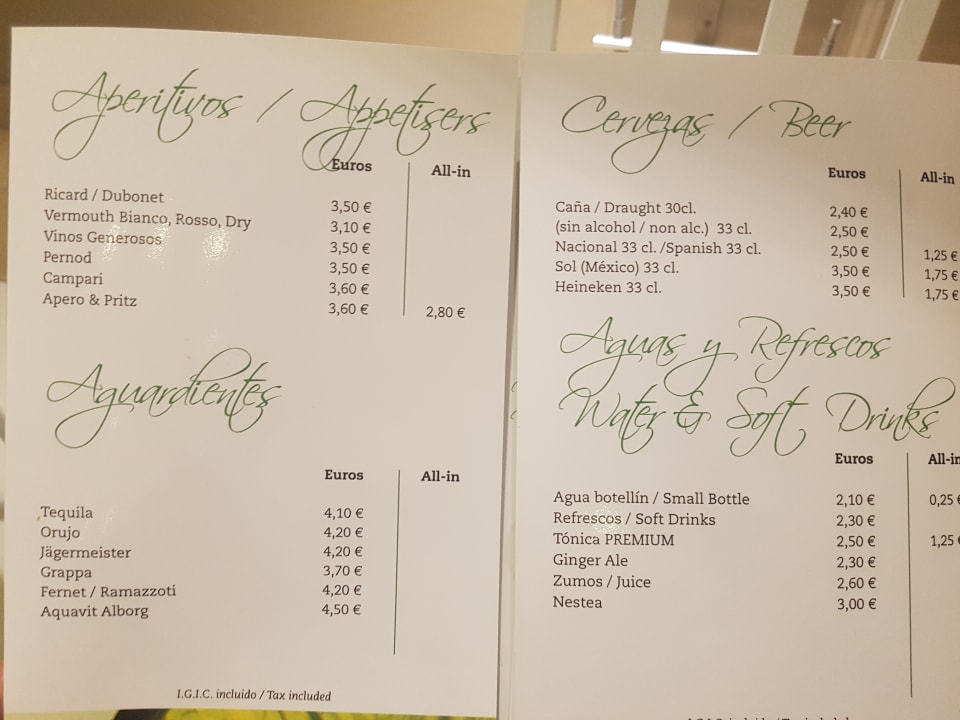 Aperitivos / Appetisers
Euros All-in
Ricard / Dubonet 3,50 €
Vermouth Bianco, Rosso, Dry 3,10 €
Vinos Generosos 3,50 €
Pernod 3,50 €
Campari 3,60 €
Apero & Pritz 3,60 € 2,80 €
Aguardientes
Euros All-in
Tequila 4,10 €
Orujo 4,20 €
Jägermeister 4,20 €
Grappa 3,70 €
Fernet / Ramazzoti 4,20 €
Aquavit Alborg 4,50 €
I.G.I.C. incluido / Tax included
Cervezas / Beer
Euros All-in
Caña / Draught 30cl. 2,40 €
(sin alcohol / non alc.) 33 cl. 2,50 €
Nacional 33 cl. /Spanish 33 cl. 2,50 € 1,25 €
Sol (México) 33 cl. 3,50 € 1,75 €
Heineken 33 cl. 3,50 € 1,75 €
Aguas y Refrescos
Water & Soft Drinks
Euros All-in
Agua botellín / Small Bottle 2,10 € 0,25 €
Refrescos / Soft Drinks 2,30 €
Tónica PREMIUM 2,50 € 1,25 €
Ginger Ale 2,30 €
Zumos / Juice 2,60 €
Nestea 3,00 €